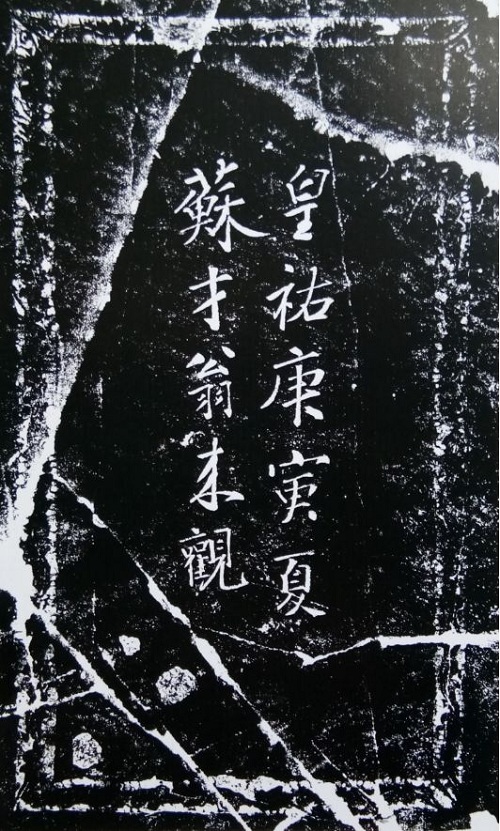 皇祐庚寅夏
蘇才翁來觀